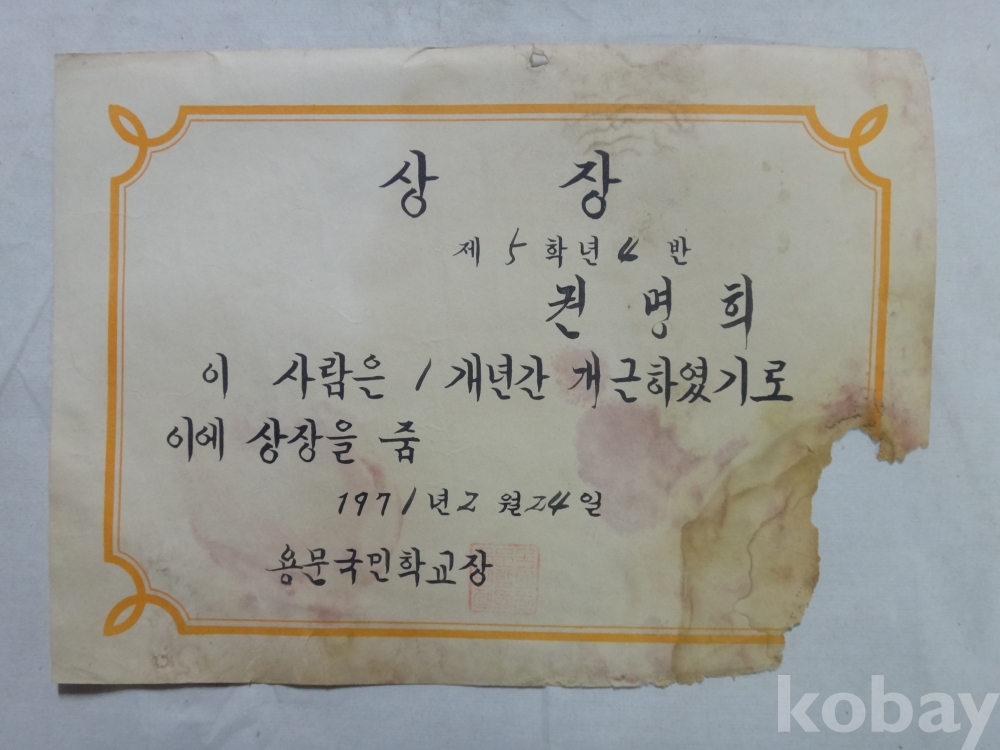 상 장
제 5 학년 4 반
권 명 희
이 사람은 1 개년간 개근하였기로
이에 상장을 줌
1971년 2월 24일
용문국민학교장
kobay